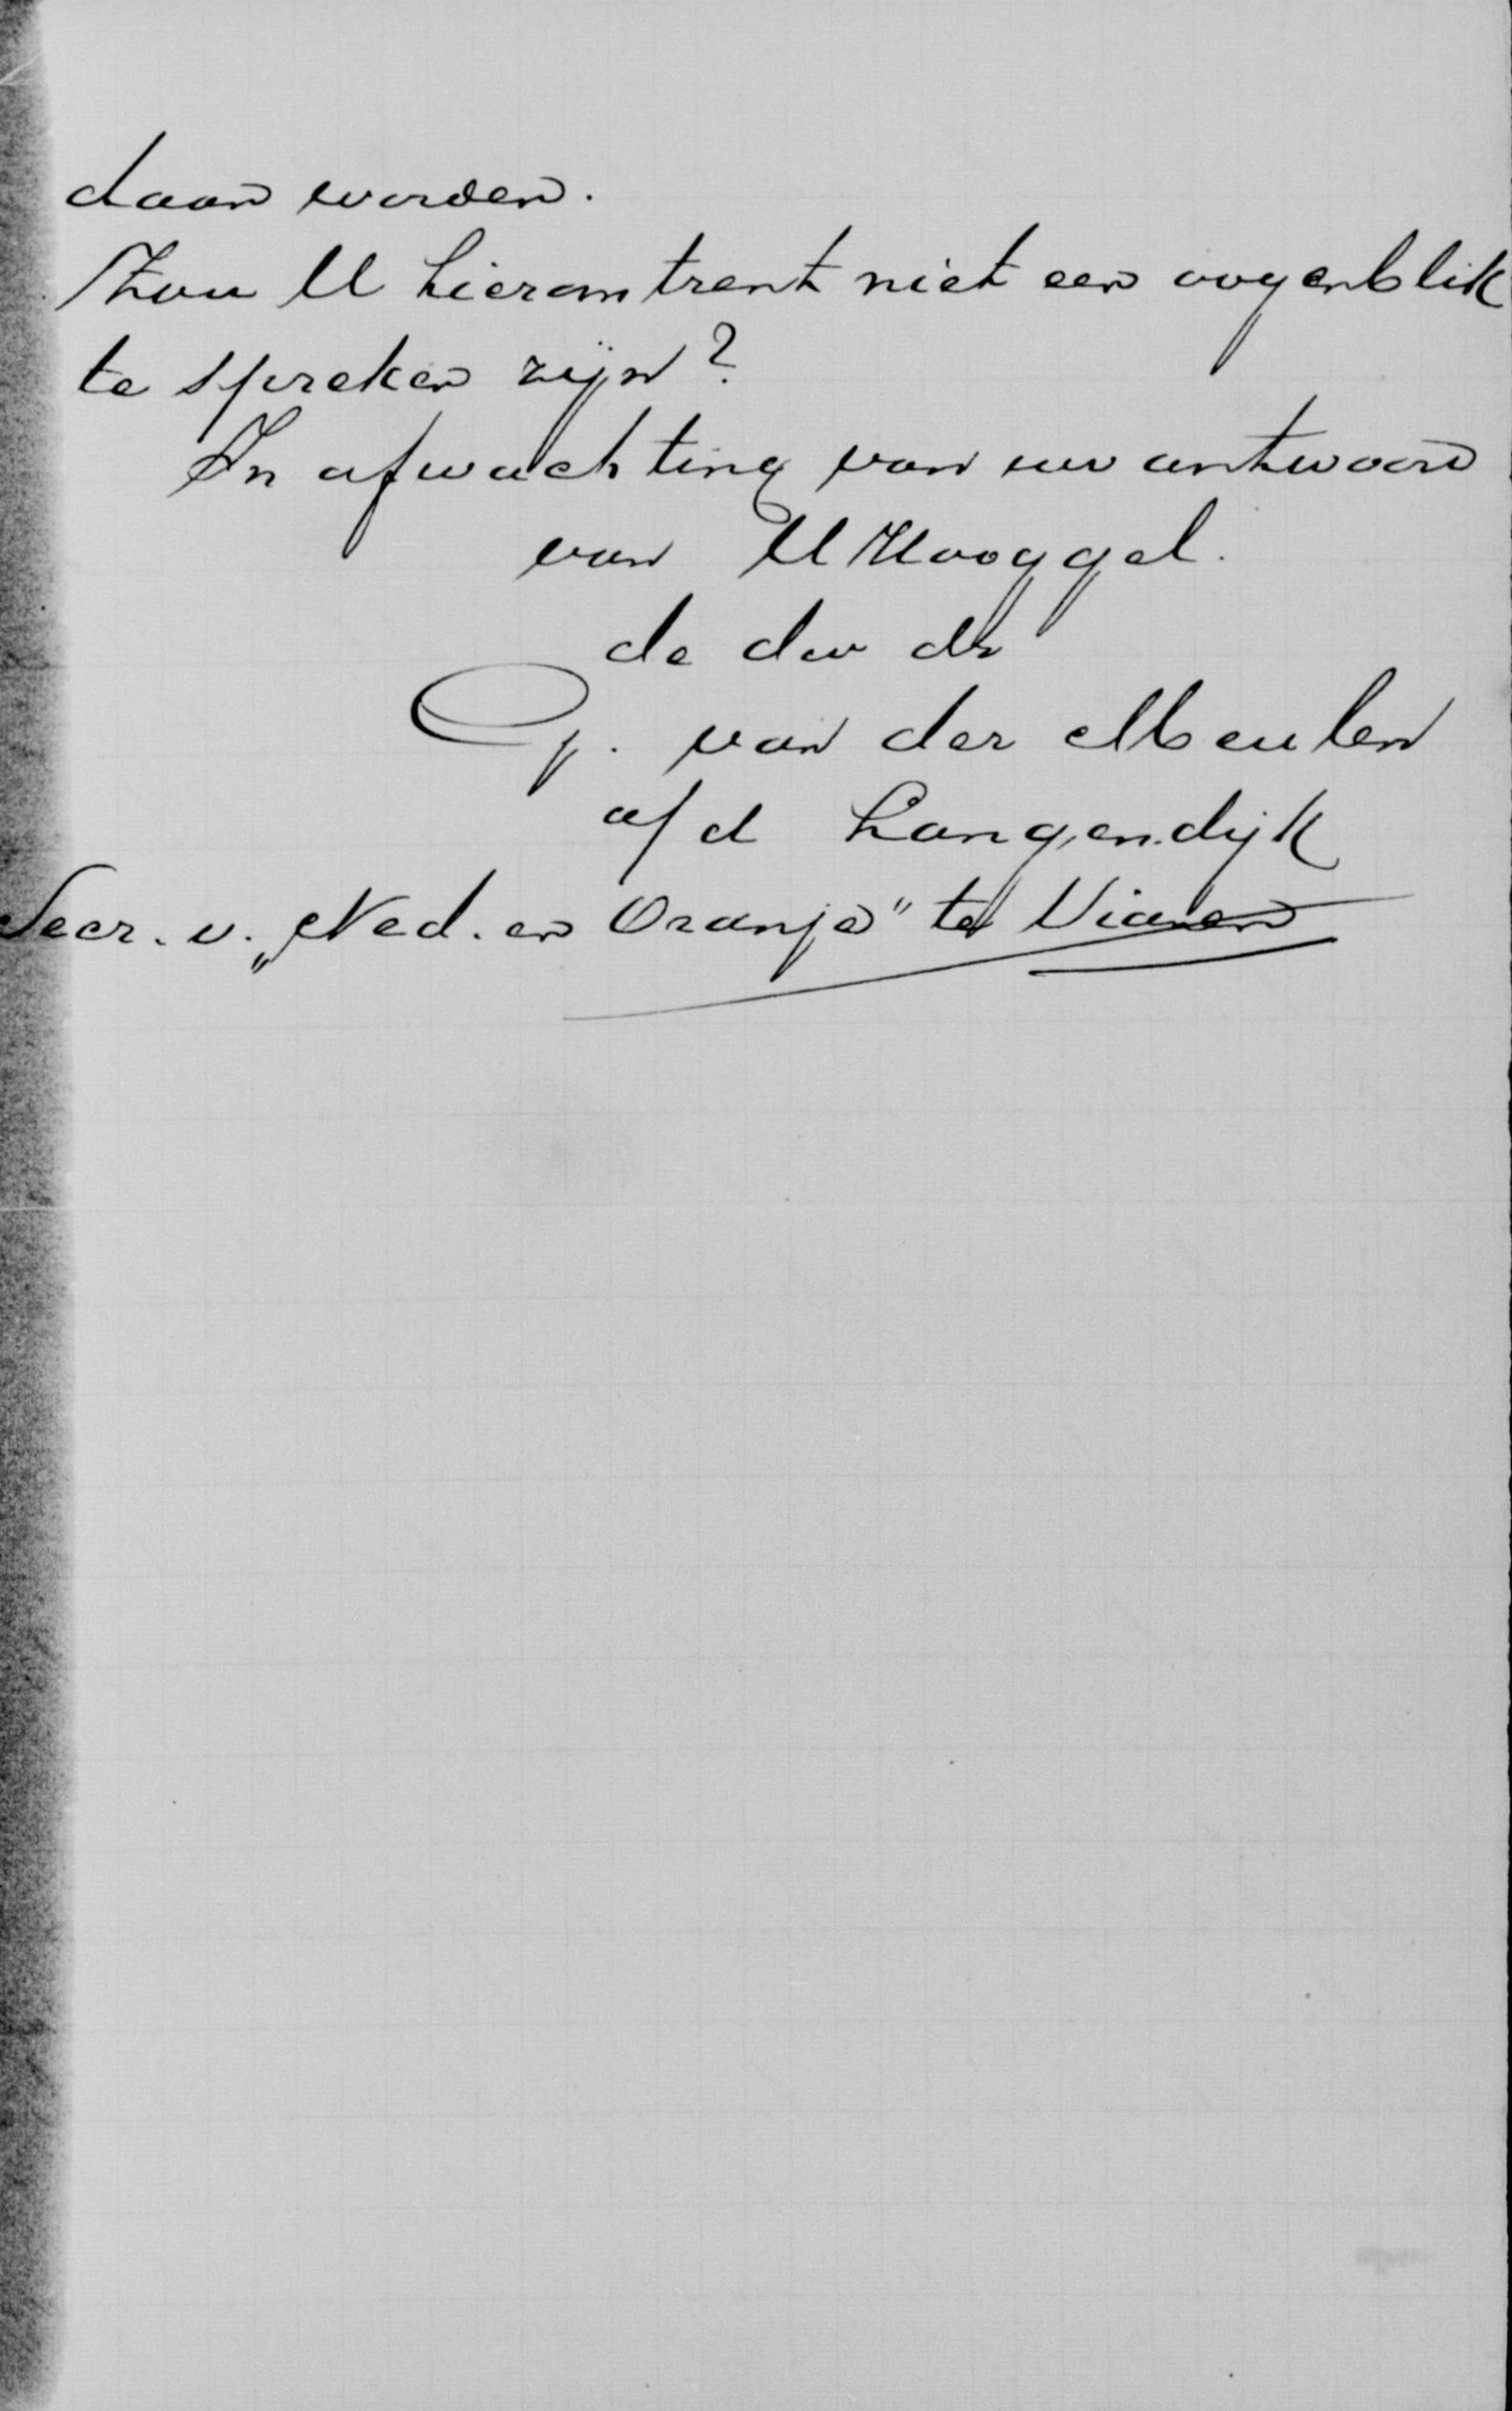 daan worden.
Zou U hieromtrent niet een oogenblik
te spreken zijn?
In afwachting van uw antwoord
van U Hooggel.
de dw dr
P. van der Meulen
a/d Langendijk
Secr. v. „Ned. en Oranje" te Vianen